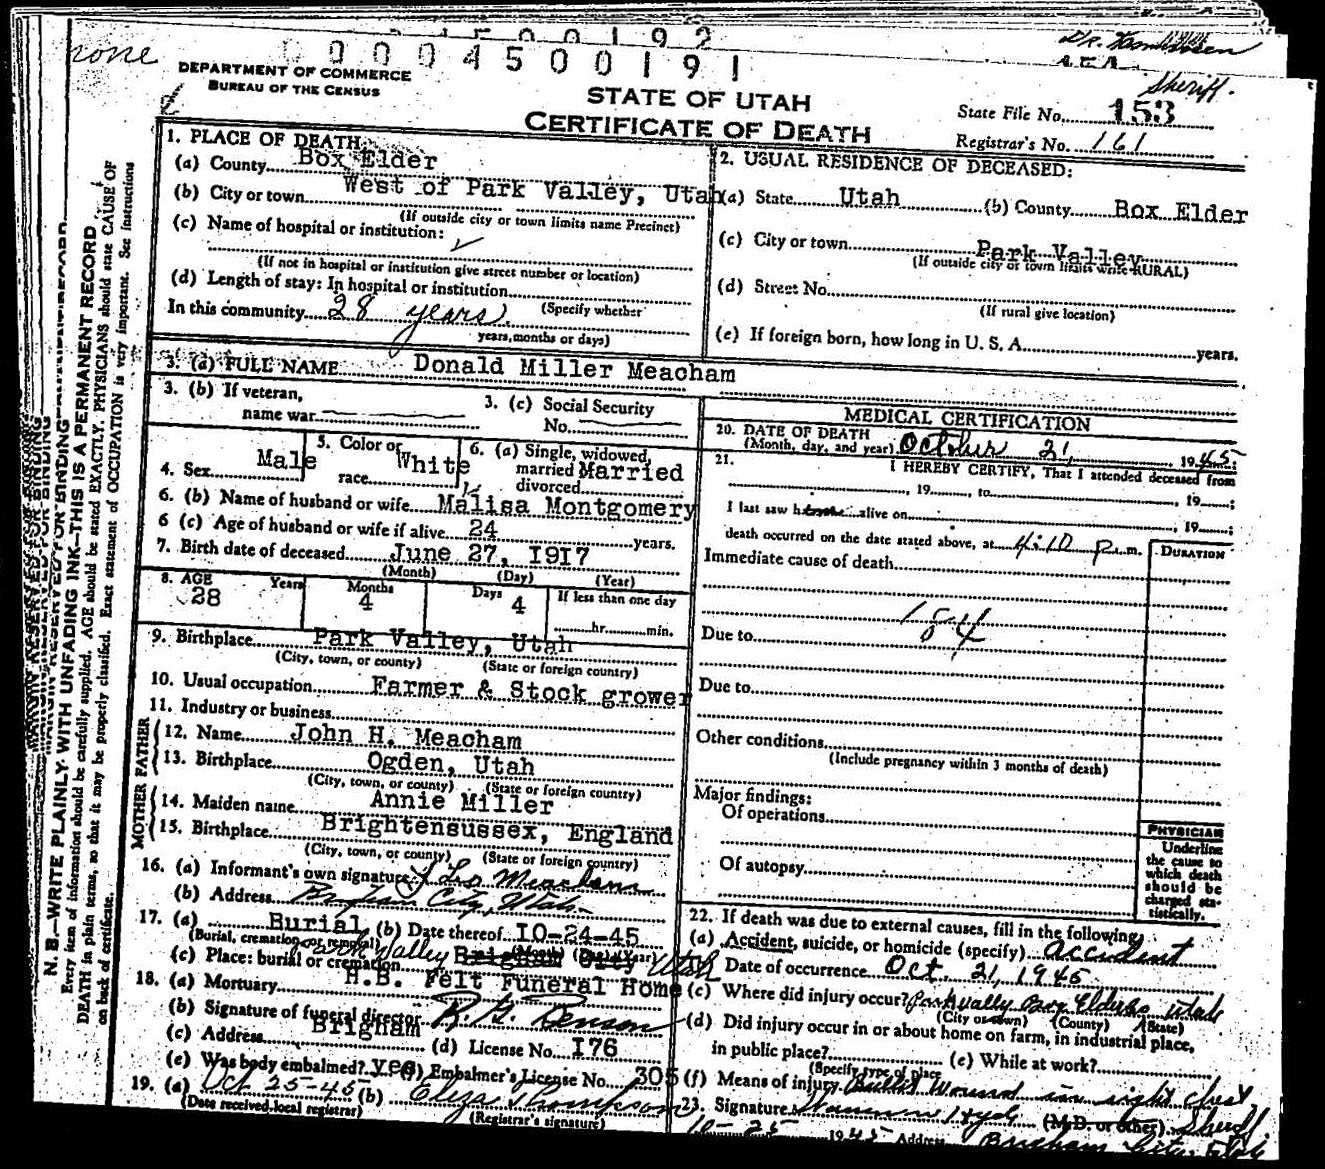 none
00004500191
Sheriff.
DEPARTMENT OF COMMERCE
BUREAU OF THE CENSUS
STATE OF UTAH
CERTIFICATE OF DEATH
State File No. 153
Registrar's No. 161
MARGIN RESERVED FOR BINDING
N. B.—WRITE PLAINLY WITH UNFADING INK—THIS IS A PERMANENT RECORD
Every item of information should be carefully supplied. AGE should be stated EXACTLY. PHYSICIANS should state CAUSE OF
DEATH in plain terms, so that it may be properly classified. Exact statement of OCCUPATION is very important. See instructions
on back of certificate.
1. PLACE OF DEATH
(a) County Box Elder
(b) City or town West of Park Valley, Utah
(If outside city or town limits name Precinct)
(c) Name of hospital or institution:
(If not in hospital or institution give street number or location)
(d) Length of stay: In hospital or institution
In this community 28 years. (Specify whether
years, months or days)
2. USUAL RESIDENCE OF DECEASED:
(a) State Utah (b) County Box Elder
(c) City or town Park Valley
(If outside city or town limits write RURAL)
(d) Street No.
(If rural give location)
(e) If foreign born, how long in U. S. A. years.
3. (a) FULL NAME Donald Miller Meacham
3. (b) If veteran, name war
3. (c) Social Security No.
4. Sex Male
5. Color or race White
6. (a) Single, widowed, married divorced Married
6. (b) Name of husband or wife Malisa Montgomery
6 (c) Age of husband or wife if alive 24 years.
7. Birth date of deceased June 27, 1917
(Month) (Day) (Year)
8. AGE Years 28 Months 4 Days 4 If less than one day hr. min.
9. Birthplace Park Valley, Utah
(City, town, or county) (State or foreign country)
10. Usual occupation Farmer & Stock grower
11. Industry or business
FATHER
12. Name John H. Meacham
13. Birthplace Ogden, Utah
(City, town, or county) (State or foreign country)
MOTHER
14. Maiden name Annie Miller
15. Birthplace Brightensussex, England
(City, town, or county) (State or foreign country)
16. (a) Informant's own signature Leo Meacham
(b) Address Brigham City, Utah
17. (a) Burial (b) Date thereof 10-24-45
(Burial, cremation, or removal) (Month) (Day) (Year)
(c) Place: burial or cremation Park Valley Brigham City Utah
18. (a) Mortuary H.B. Felt Funeral Home
(b) Signature of funeral director
(c) Address Brigham (d) License No. 176
(e) Was body embalmed? yes (f) Embalmer's License No. 305
19. (a) Oct 25-45 (b) Eliza Thompson
(Date received local registrar) (Registrar's signature)
MEDICAL CERTIFICATION
20. DATE OF DEATH
(Month, day, and year) October 21, 1945
21. I HEREBY CERTIFY, That I attended deceased from
, 19 , to , 19 ;
I last saw h alive on , 19 ;
death occurred on the date stated above, at 4:10 p.m.
DURATION
Immediate cause of death
184
Due to
Due to
Other conditions
(Include pregnancy within 3 months of death)
Major findings:
Of operations
Of autopsy
PHYSICIAN
Underline
the cause to
which death
should be
charged sta-
tistically.
22. If death was due to external causes, fill in the following:
(a) Accident, suicide, or homicide (specify) Accident
Date of occurrence Oct. 21, 1945
(c) Where did injury occur? Park Vally Box Elder Utah
(City or town) (County) (State)
(d) Did injury occur in or about home on farm, in industrial place,
in public place? (e) While at work?
(Specify type of place)
(f) Means of injury Bullet Wound in right chest
23. Signature Warren Hyde (M.D. or other) Sheriff
10-25 1945 Address Brigham City, Utah